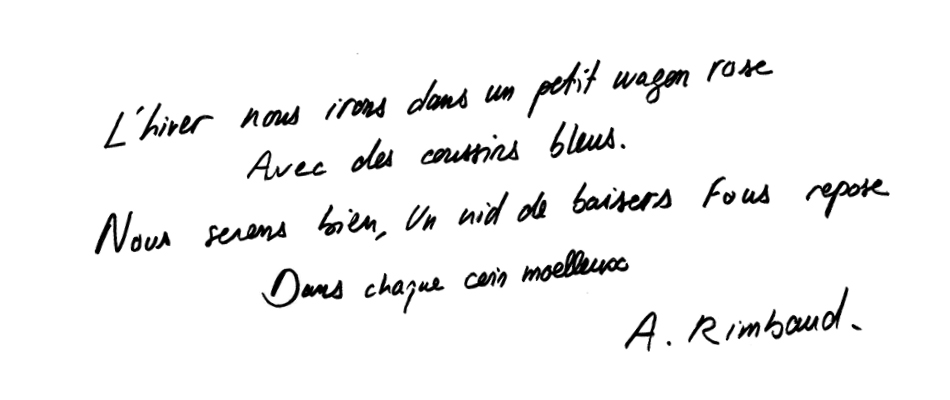 L'hiver nous irons dans un petit wagon rose
Avec des coussins bleus.
Nous serons bien, Un nid de baisers Fous repose
Dans chaque coin moelleux
A. Rimbaud.